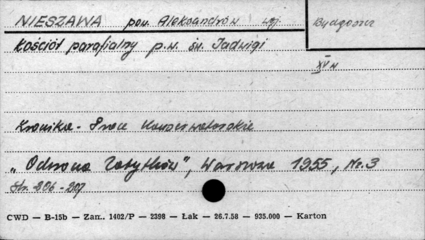 NIESZAWA pow. Aleksandrów woj. Bydgoszcz
Kościół parafialny p.w. św. Jadwigi
XV w
Kronika - Prace Konserwatorskie
„Ochrona Zabytków", Warszawa 1955, Nr. 3
Str. 206-207
CWD — B-15b — Zam. 1402/P — 2398 — Łak — 26.7.58 — 935.000 — Karton